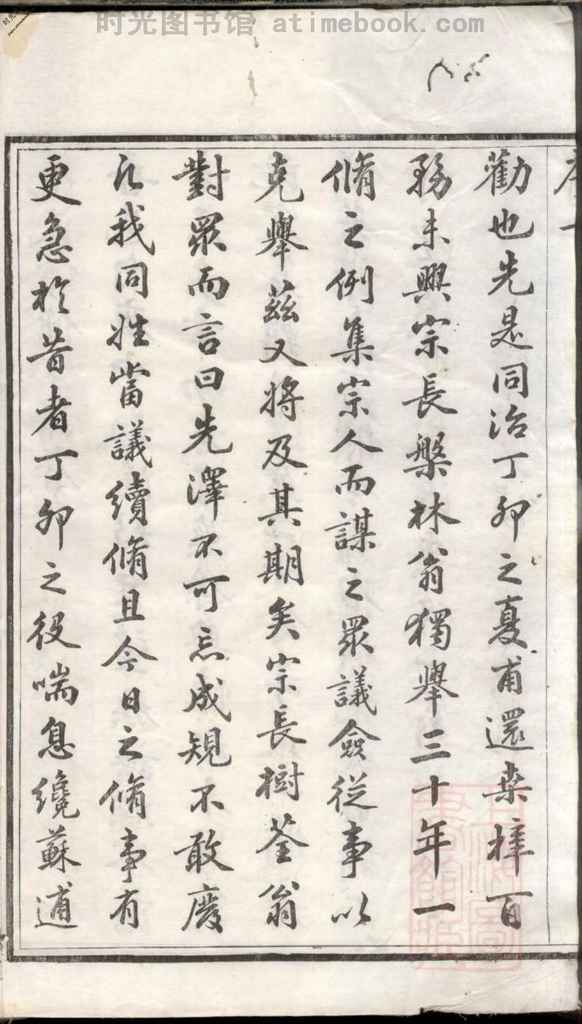 时光图书馆 atimebook.com
序一
勸也先是同治丁卯之夏甫還桑梓百
務未興宗長槃林翁獨舉三十年一
脩之例集宗人而謀之眾議僉從事以
克舉茲又將及其期矣宗長樹荃翁
對眾而言曰先澤不可忘成規不敢廢
凡我同姓當議續脩且今日之脩事有
更急於昔者丁卯之役喘息纔蘇逋